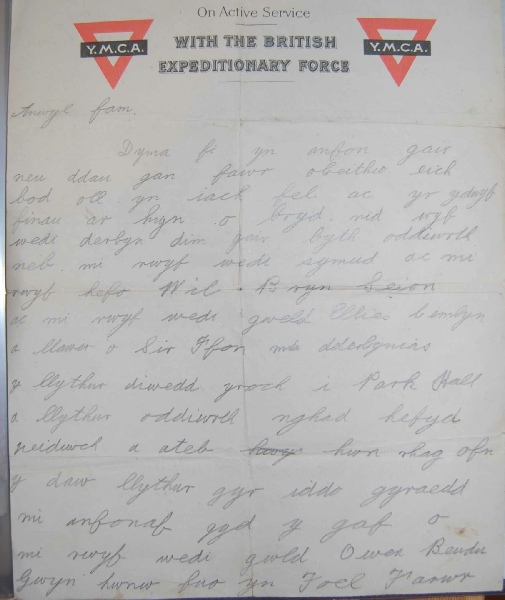 On Active Service
WITH THE BRITISH
EXPEDITIONARY FORCE
Y.M.C.A.
Y.M.C.A.
Anwyl fam.
Dyma fi yn anfon gair
neu ddau gan fawr obeithio eich
bod oll yn iach fel ac yr ydwyf
finau ar hyn o bryd. nid wyf
wedi derbyn dim gair byth oddiwrth
neb. mi rwyf wedi symud ac mi
rwyf hefo Wil Bryn Seion
ac mi rwyf wedi gweld Ellis
a llawer o Sir Ffon
y llythur diwedd yroch i Park Hall
a llythur oddiwrth nghad hefyd
peidiwch a ateb hwn rhag ofn
y daw llythur gyr iddo gyraedd
mi anfonaf gyd y gaf o
mi rwyf wedi gwld Owen
Gwyn hwnw fuo yn Foel Fawr